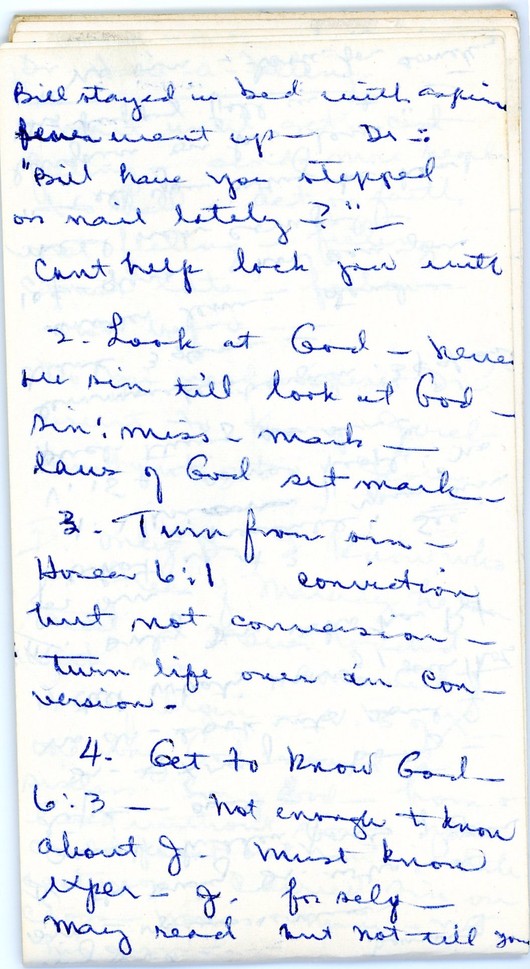 Bill stayed in bed with aspirin
fever went up — Dr -:
"Bill have you stepped
on nail lately?" —
Cant help lock jaw with
2. Look at God — never
see sin till look at God —
Sin: miss - mark —
laws of God set mark —
3. Turn from sin —
Hosea 6:1 conviction
but not conversion —
turn life over in con-
version -
4. Get to know God —
6:3 — Not enough to know
about J. Must know
Exper - J. for self —
May read but not till you